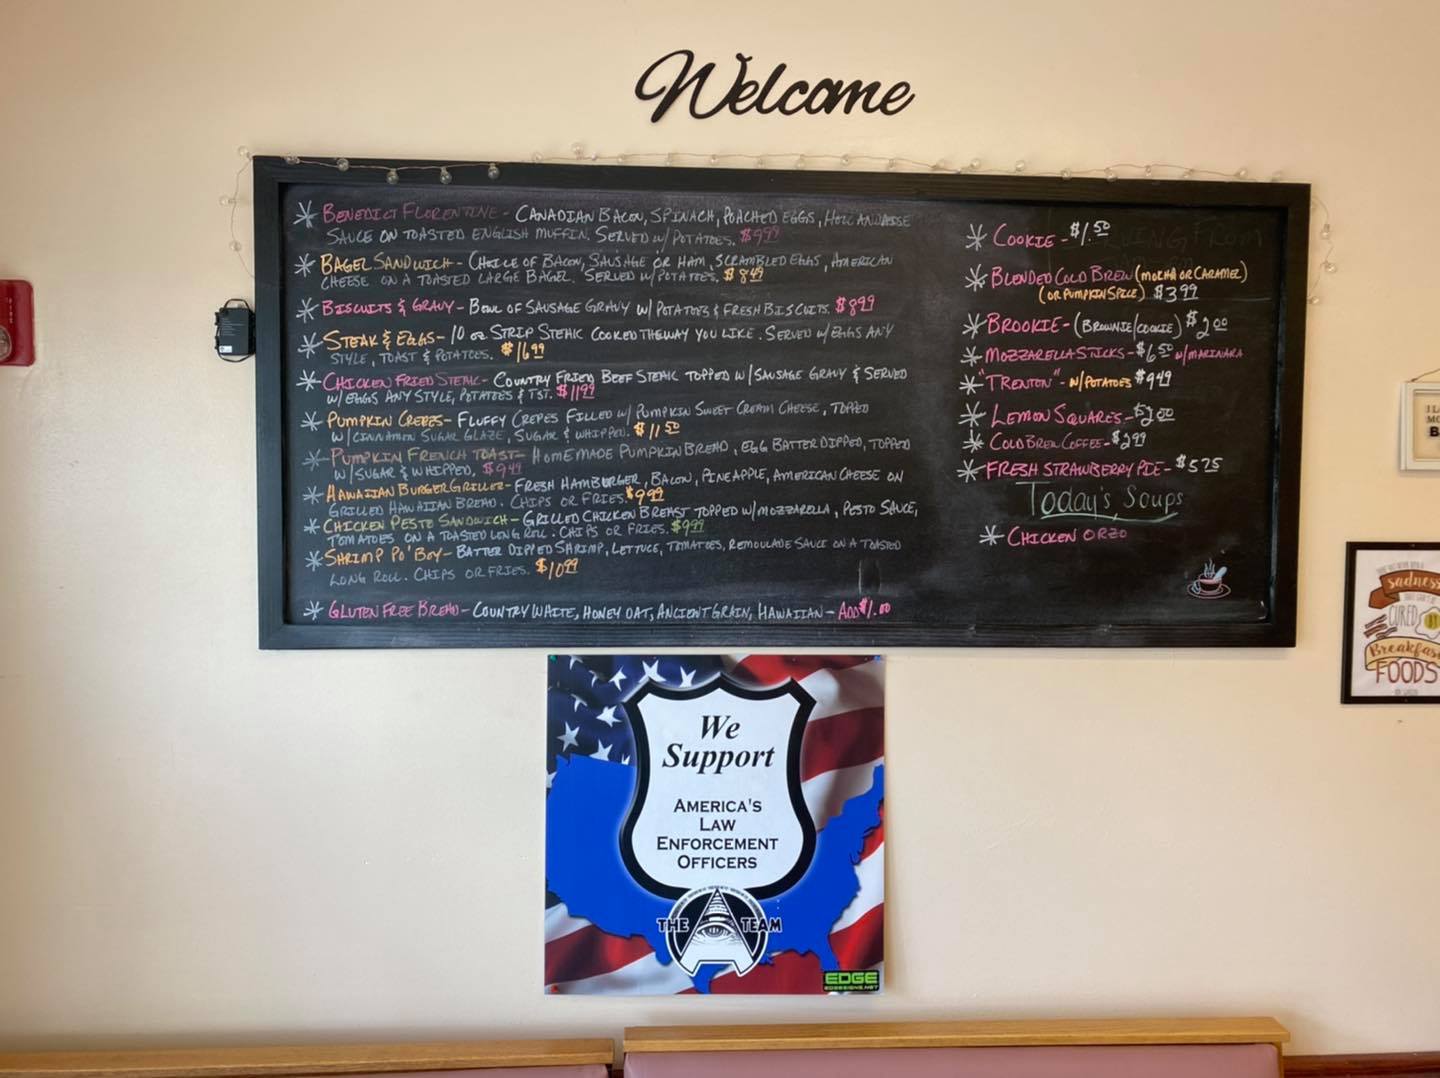 Welcome
* BENEDICT FLORENTINE - CANADIAN BACON, SPINACH, POACHED EGGS, HOLLANDAISE
SAUCE ON TOASTED ENGLISH MUFFIN. SERVED W/POTATOES. $9.99
* BAGEL SANDWICH - CHOICE OF BACON, SAUSAGE OR HAM, SCRAMBLED EGGS, AMERICAN
CHEESE ON A TOASTED LARGE BAGEL. SERVED W/POTATOES. $8.49
* BISCUITS & GRAVY - BOWL OF SAUSAGE GRAVY W/ POTATOES & FRESH BISCUITS. $8.99
* STEAK & EGGS - 10 oz STRIP STEAK COOKED THE WAY YOU LIKE. SERVED W/ EGGS ANY
STYLE, TOAST & POTATOES. $16.99
* CHICKEN FRIED STEAK - COUNTRY FRIED BEEF STEAK TOPPED W/ SAUSAGE GRAVY & SERVED
W/ EGGS ANY STYLE, POTATOES & TST. $11.99
* PUMPKIN CREPES - FLUFFY CREPES FILLED W/ PUMPKIN SWEET CREAM CHEESE, TOPPED
W/ CINNAMON SUGAR GLAZE, SUGAR & WHIPPED. $11.50
* PUMPKIN FRENCH TOAST - HOMEMADE PUMPKIN BREAD, EGG BATTER DIPPED, TOPPED
W/ SUGAR & WHIPPED. $9.49
* HAWAIIAN BURGER GRILLER - FRESH HAMBURGER, BACON, PINEAPPLE, AMERICAN CHEESE ON
GRILLED HAWAIIAN BREAD. CHIPS OR FRIES. $9.99
* CHICKEN PESTO SANDWICH - GRILLED CHICKEN BREAST TOPPED W/ MOZZARELLA, PESTO SAUCE,
TOMATOES ON A TOASTED LONG ROLL. CHIPS OR FRIES. $9.99
* SHRIMP PO'BOY - BATTER DIPPED SHRIMP, LETTUCE, TOMATOES, REMOULADE SAUCE ON A TOASTED
LONG ROLL. CHIPS OR FRIES. $10.99
* GLUTEN FREE BREAD - COUNTRY WHITE, HONEY OAT, ANCIENT GRAIN, HAWAIIAN - ADD $1.00
* COOKIE - $1.50
* BLENDED COLD BREW (MOCHA OR CARAMEL)
(OR PUMPKIN SPICE) $3.99
* BROOKIE - (BROWNIE/COOKIE) $2.00
* MOZZARELLA STICKS - $6.50 W/ MARINARA
* "TRENTON" - W/POTATOES $9.49
* LEMON SQUARES - $2.00
* COLD BREW COFFEE - $2.99
* FRESH STRAWBERRY PIE - $5.75
Today's Soups
* CHICKEN ORZO
We
Support
AMERICA'S
LAW
ENFORCEMENT
OFFICERS
THE A TEAM
EDGE
EDGESIGNS.NET
sadness
CURED BY
Breakfast
FOODS